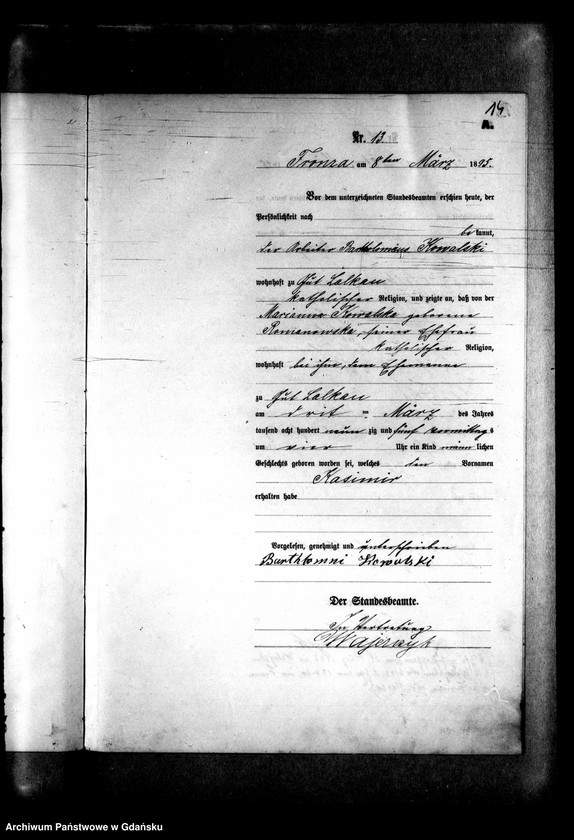 14
A.
Nr. 13
Tronza am 8ten März 1895.
Vor dem unterzeichneten Standesbeamten erschien heute, der
Persönlichkeit nach
bekannt,
der Arbeiter Bartholomäus Kowalski
wohnhaft zu Gut Lalkau
katholischer Religion, und zeigte an, daß von der
Marianna Kowalska geborene
Romanowska, seiner Ehefrau
katholischer Religion,
wohnhaft bei ihm, dem Ehemanne
zu Gut Lalkau
am drit ten März des Jahres
tausend acht hundert neunzig und fünf vormittags
um vier Uhr ein Kind männlichen
Geschlechts geboren worden sei, welches den Vornamen
Kasimir
erhalten habe
Vorgelesen, genehmigt und unterschrieben
Barthlomni Kowalski
Der Standesbeamte.
In Vertretung
Majerzyk
Archiwum Państwowe w Gdańsku